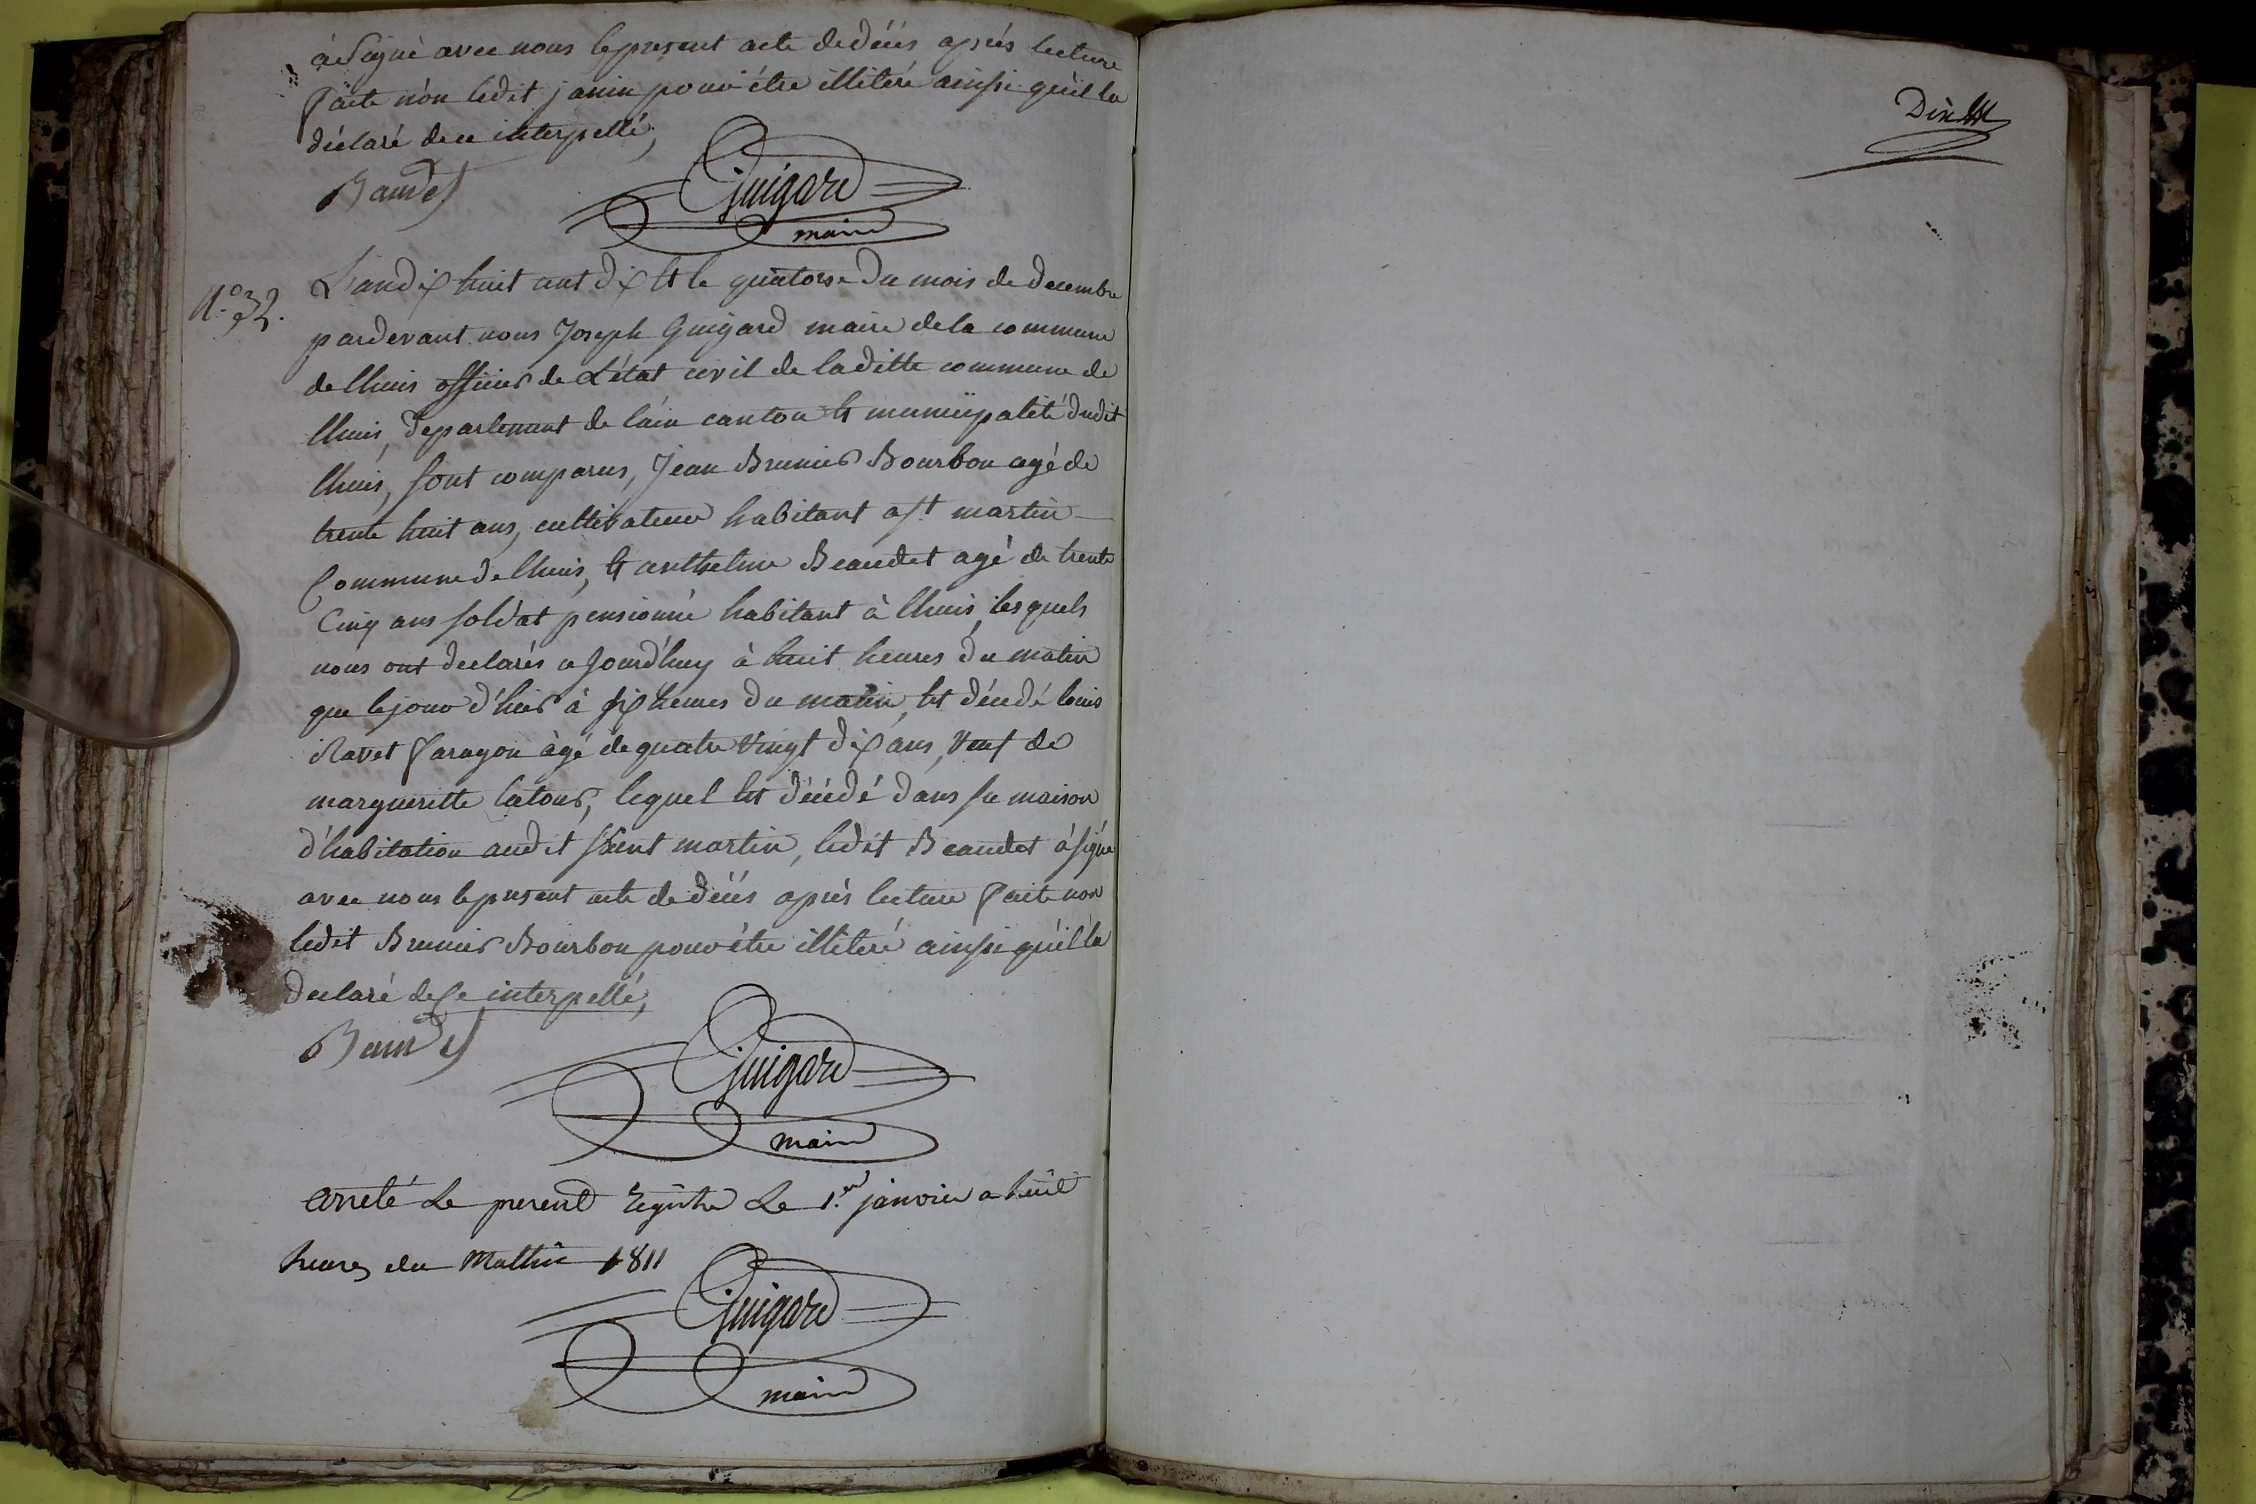 à signé avec nous le present acte de décés aprés lecture
faite nòn ledit janin pour être illiteré ainsi qu'il la
déclaré de ce interpellé,
Baudet
Guigard
maire
N.° 32.
L'an dix huit cent dix et le quatorse du mois de decembre
pardevant nous Joseph Guigard maire de la commune
de lhuis officier de L'état civil de laditte commune de
lhuis, departement de l'ain canton et municipalité dudit
lhuis, sont comparus, Jean Brunier Bourbon agé de
trente huit ans, cultivateur habitant a St. martin
Commune de lhuis, et anthelme Beaudet agé de trente
Cinq ans soldat pensionné habitant à lhuis, lesquels
nous ont declarés ce Jourd'huy à huit heures du matin
que le jour d'hier à six heures du matin, est décédé louis
Ravet faragon àgé de quatre vingt dix ans, veuf de
margueritte latour, lequel est décédé dans sa maison
d'habitation audit saint martin, ledit Beaudet à signé
avec nous le present acte de décés aprés lecture faite non
ledit Brunier Bourbon pour être illiteré ainsi qu'il la
declaré de ce interpellé,
Baudet
Guigard
maire
arreté Le present Registre Le 1.er janvier a huit
heures du Mattin 1811
Guigard
maire
Dix